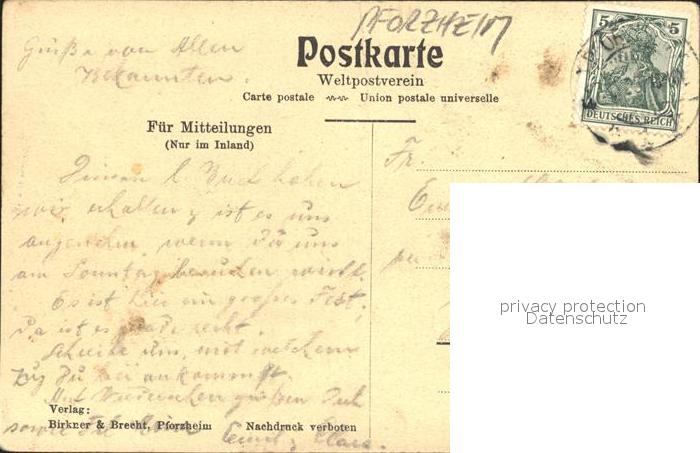 PFORZHEIM
Grüße von Allen
Bekannten.
Postkarte
Weltpostverein
Carte postale Union postale universelle
5 5
DEUTSCHES REICH
Für Mitteilungen
(Nur im Inland)
Fr.
haben
wir erhalten, ist es uns
angenehm, wenn Du uns
am Sonntag besuchen wirst.
Es ist hier ein großes Fest,
da ist es gerade recht.
Schreibe uns, mit welchem
Zug Du hier ankommst.
Auf Wiedersehen grüßen Dich
privacy protection
Datenschutz
Verlag:
Birkner & Brecht, Pforzheim Nachdruck verboten
sowie
Emil